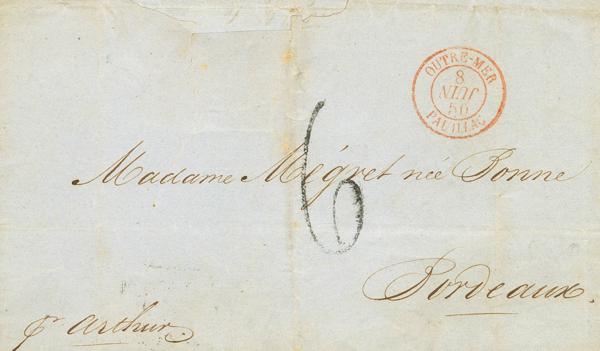 OUTRE-MER
8
JUIN
50
PAUILLAC
Madame Mégret née Bonne
6
Bordeaux.
pr Arthur